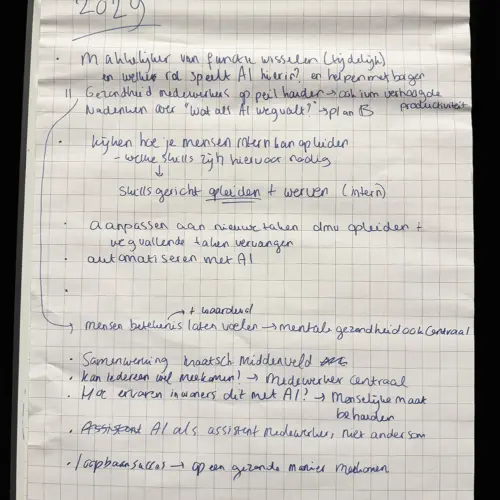 2029
• Makkelijker van functie wisselen (tijdelijk)
en welke rol speelt AI hierin? en helpen met borgen
Gezondheid medewerkers op peil houden → ook ivm verhoogde
productiviteit
Nadenken over "Wat als AI wegvalt?" → plan B
• kijken hoe je mensen intern kan opleiden
- welke skills zijn hiervoor nodig
↓
skillsgericht opleiden + werven (intern)
• aanpassen aan nieuwe taken dmv opleiden +
wegvallende taken vervangen
• automatiseren met AI
•
+ waarderend
→ mensen betekenis laten voelen → mentale gezondheid ook centraal
• Samenwerking maatsch middenveld
• Kan iedereen wel meekomen? → Medewerker centraal
• Hoe ervaren inwoners dit met AI? → Menselijke maat
behouden
• Assistent AI als assistent medewerker, niet andersom
• loopbaansucces → op een gezonde manier meekomen